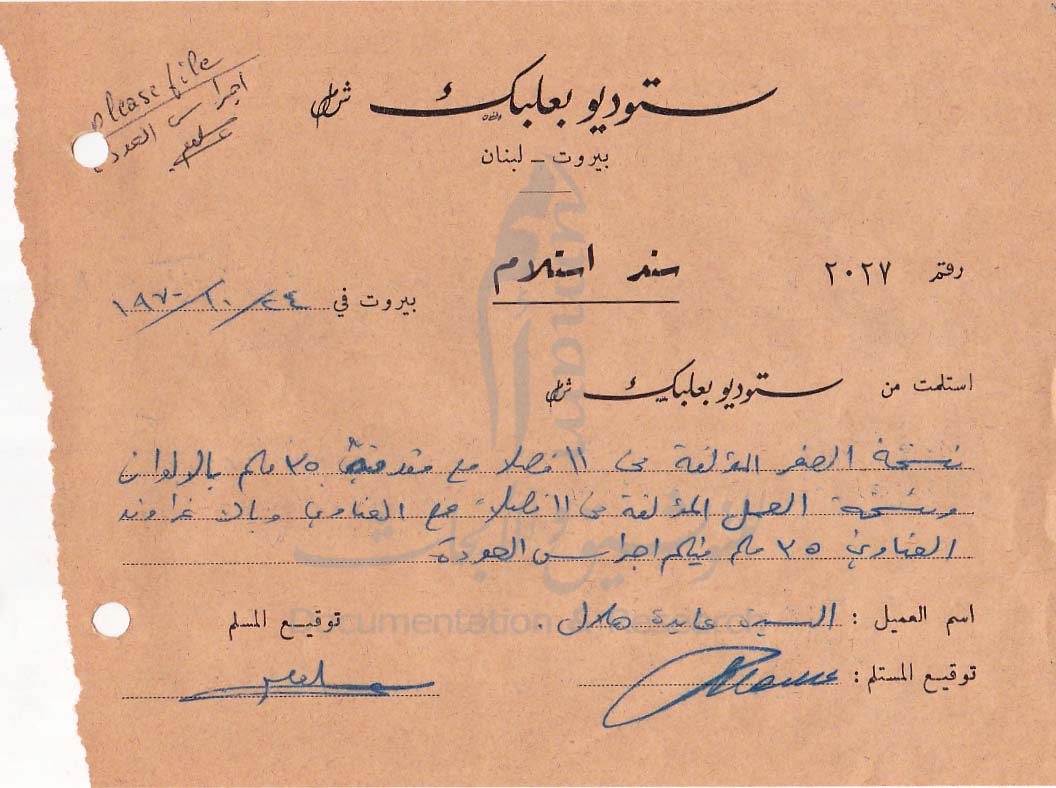 please file
اجراس العودة
ستوديو بعلبك ش.م.ل
بيروت - لبنان
رقم ٢٠٢٧
سند استلام
بيروت في ٢٤/١٠/١٩٧٠
استلمت من ستوديو بعلبك ش.م.ل
نسخة الصفر المؤلفة من ١١ فصلا مع مقدمة ٣٥ ملم بالالوان
ونسخة العمل المؤلفة من ١١ فصلاً مع العناوين وباك غراوند
العناوين ٣٥ ملم فيلم اجراس العودة
اسم العميل : السيدة عايدة هلال .
توقيع المسلم
توقيع المستلم :
umam
للتوثيق والأبحاث
Documentation & Research